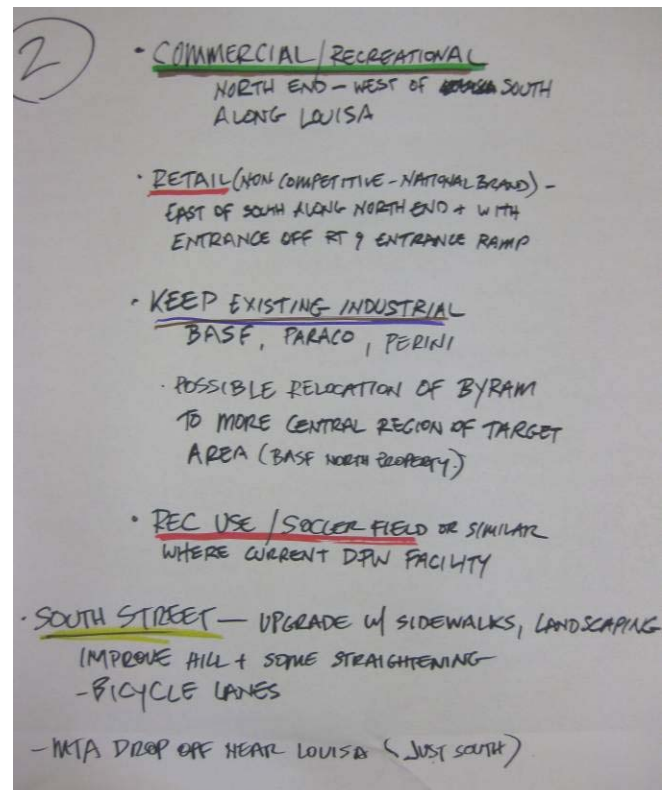 2
• COMMERCIAL/RECREATIONAL
NORTH END - WEST OF SOUTH
ALONG LOUISA
• RETAIL (NON COMPETITIVE - NATIONAL BRAND) -
EAST OF SOUTH ALONG NORTH END + WITH
ENTRANCE OFF RT 9 ENTRANCE RAMP
• KEEP EXISTING INDUSTRIAL
BASF, PARACO, PERINI
• POSSIBLE RELOCATION OF BYRAM
TO MORE CENTRAL REGION OF TARGET
AREA (BASF NORTH PROPERTY.)
• REC USE / SOCCER FIELD OR SIMILAR
WHERE CURRENT DPW FACILITY
• SOUTH STREET — UPGRADE W/ SIDEWALKS, LANDSCAPING
IMPROVE HILL + SOME STRAIGHTENING
- BICYCLE LANES
- MTA DROP OFF NEAR LOUISA (JUST SOUTH)